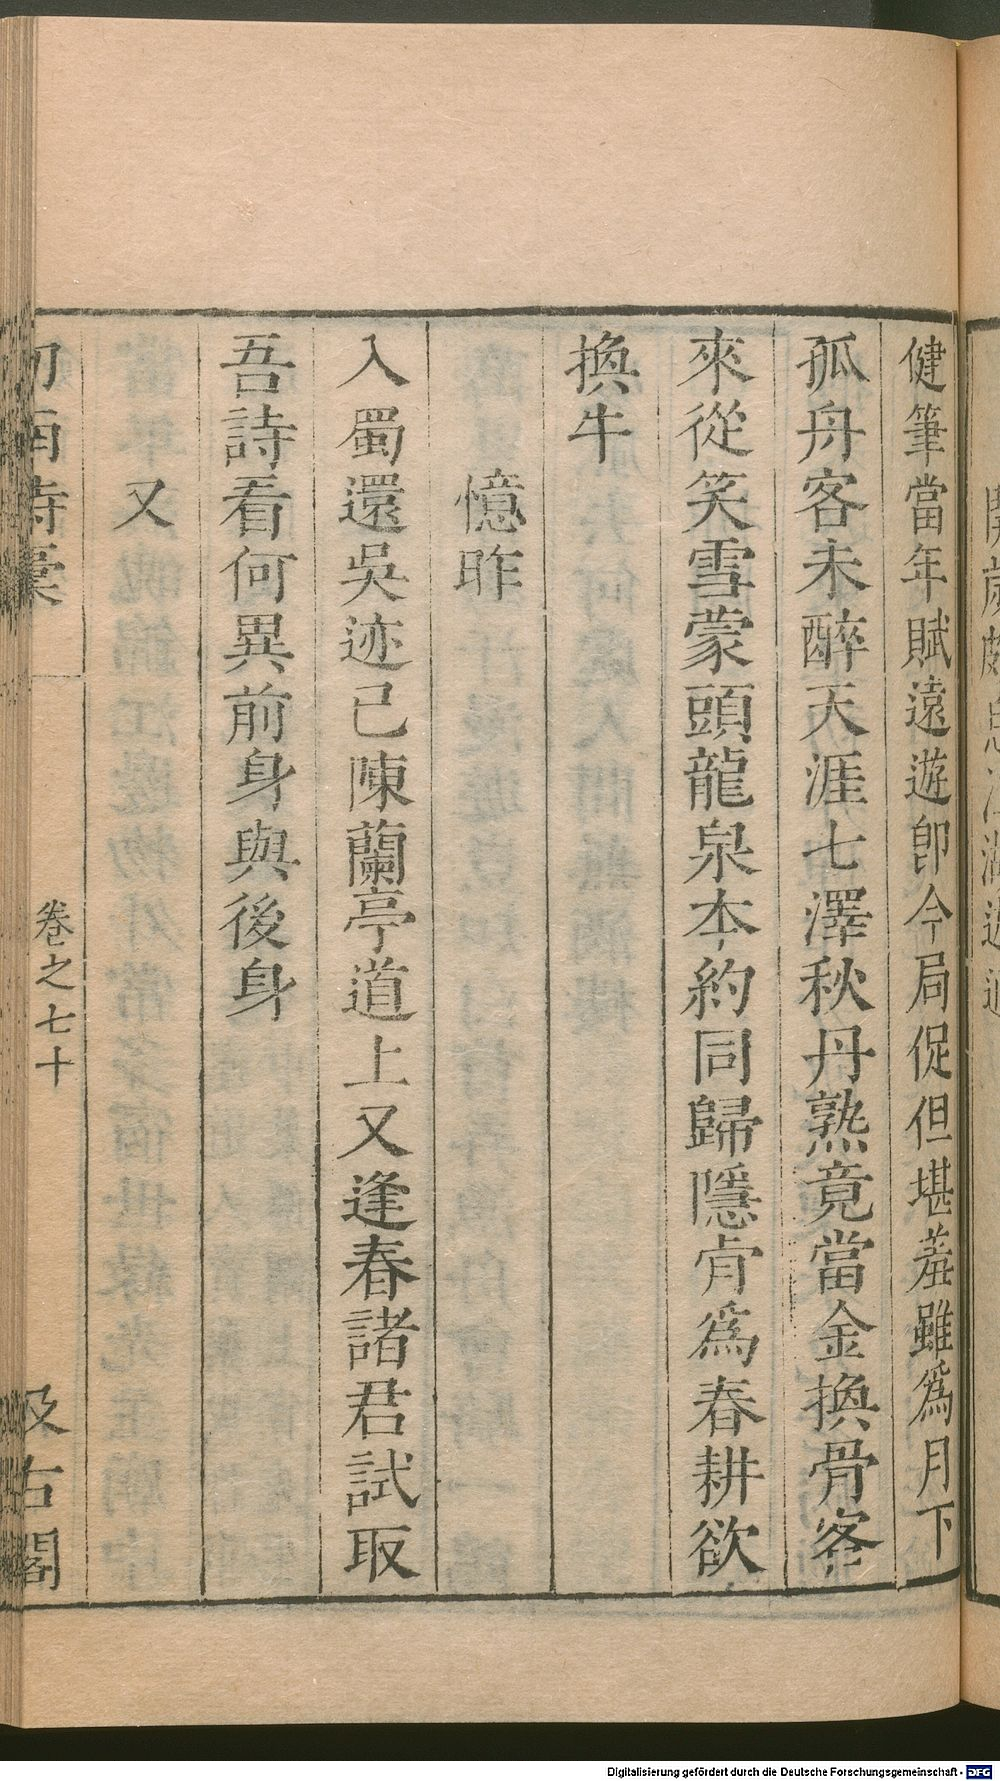 健筆當年賦遠遊即今局促但堪羞雖爲月下
孤舟客未醉天涯七澤秋丹熟竟當金換骨客
來從笑雪蒙頭龍泉本約同歸隱肯爲春耕欲
換牛
憶昨
入蜀還吳迹已陳蘭亭道上又逢春諸君試取
吾詩看何異前身與後身
又
劍南詩稾
卷之七十
汲古閣
Digitalisierung gefördert durch die Deutsche Forschungsgemeinschaft - DFG